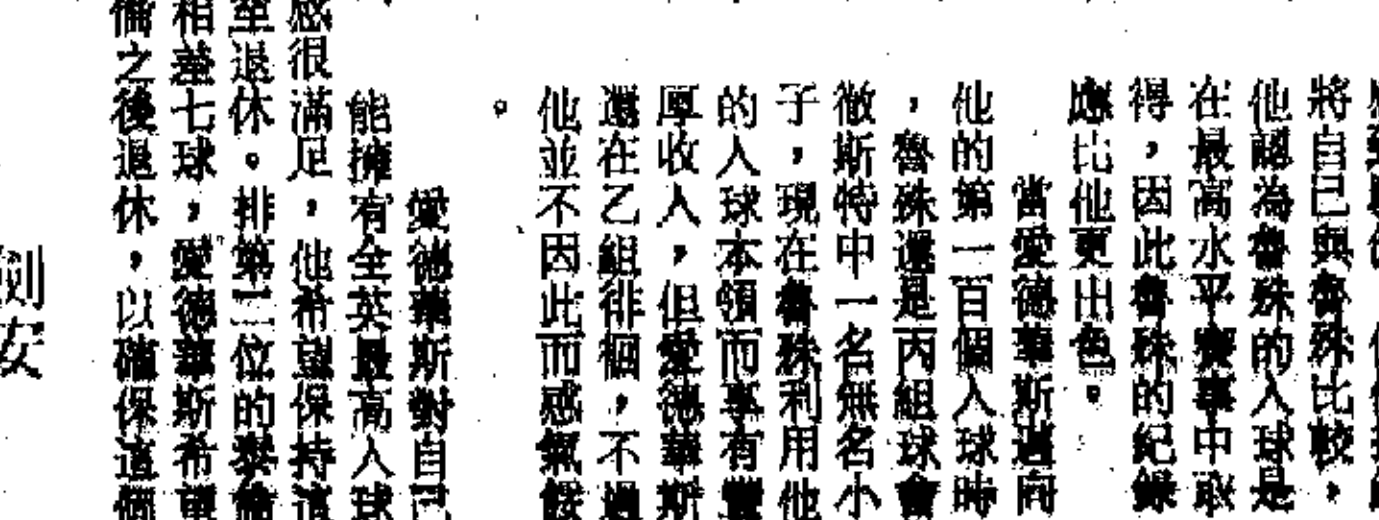 將自己與魯殊比較，
他認為魯殊的入球是
在最高水平賽事中取
得，因此魯殊的紀錄
應比他更出色。
當愛德華斯邁向
他的第一百個入球時
，魯殊還是丙組球會
徹斯特中一名無名小
子，現在魯殊利用他
的入球本領而享有豐
厚收入，但愛德華斯
還在乙組徘徊，不過
他並不因此而感氣餒
。
愛德華斯對自己
能擁有全英最高入球
感很滿足，他希望保持這
至退休。排第二位的泰倫
相差七球，愛德華斯希望
倫之後退休，以確保這個
劍安